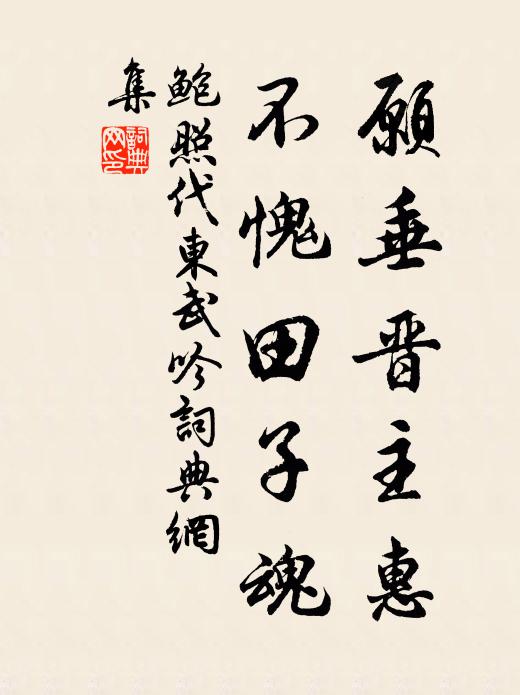 願垂晋主惠
不愧田子魂
鲍照代東武吟詞典網
集
詞典
网印